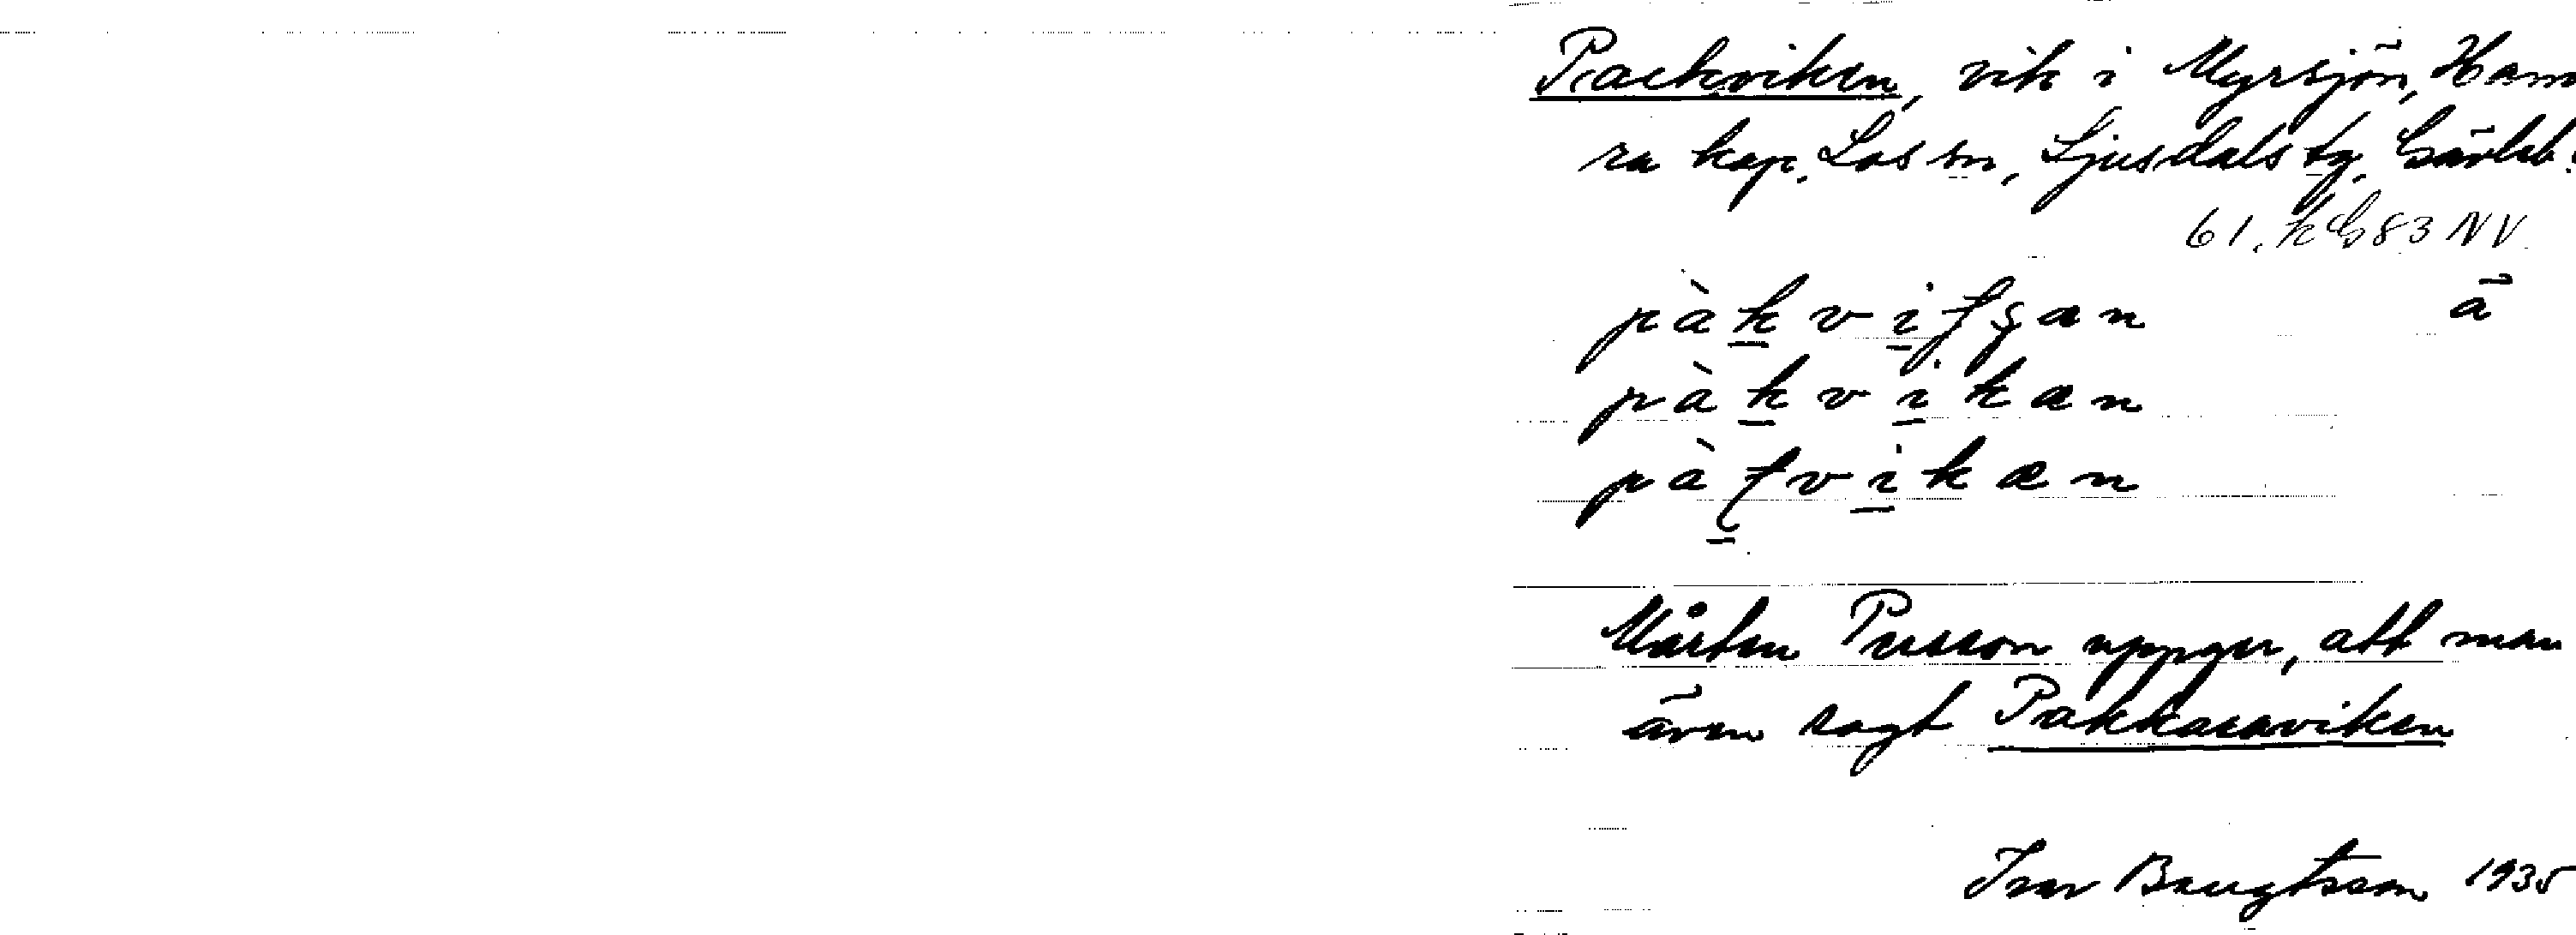 Packviken, vik i Myrsjön, Ham
ra kap. Los sn, Ljusdals tg, Gävleb.
61. kG83 NV
pàkvi
ä
pàkvikan
vikæn
Mårten Persson uppger, att man
även sagt Pakkaraviken
Ivar Bengtsson 1935